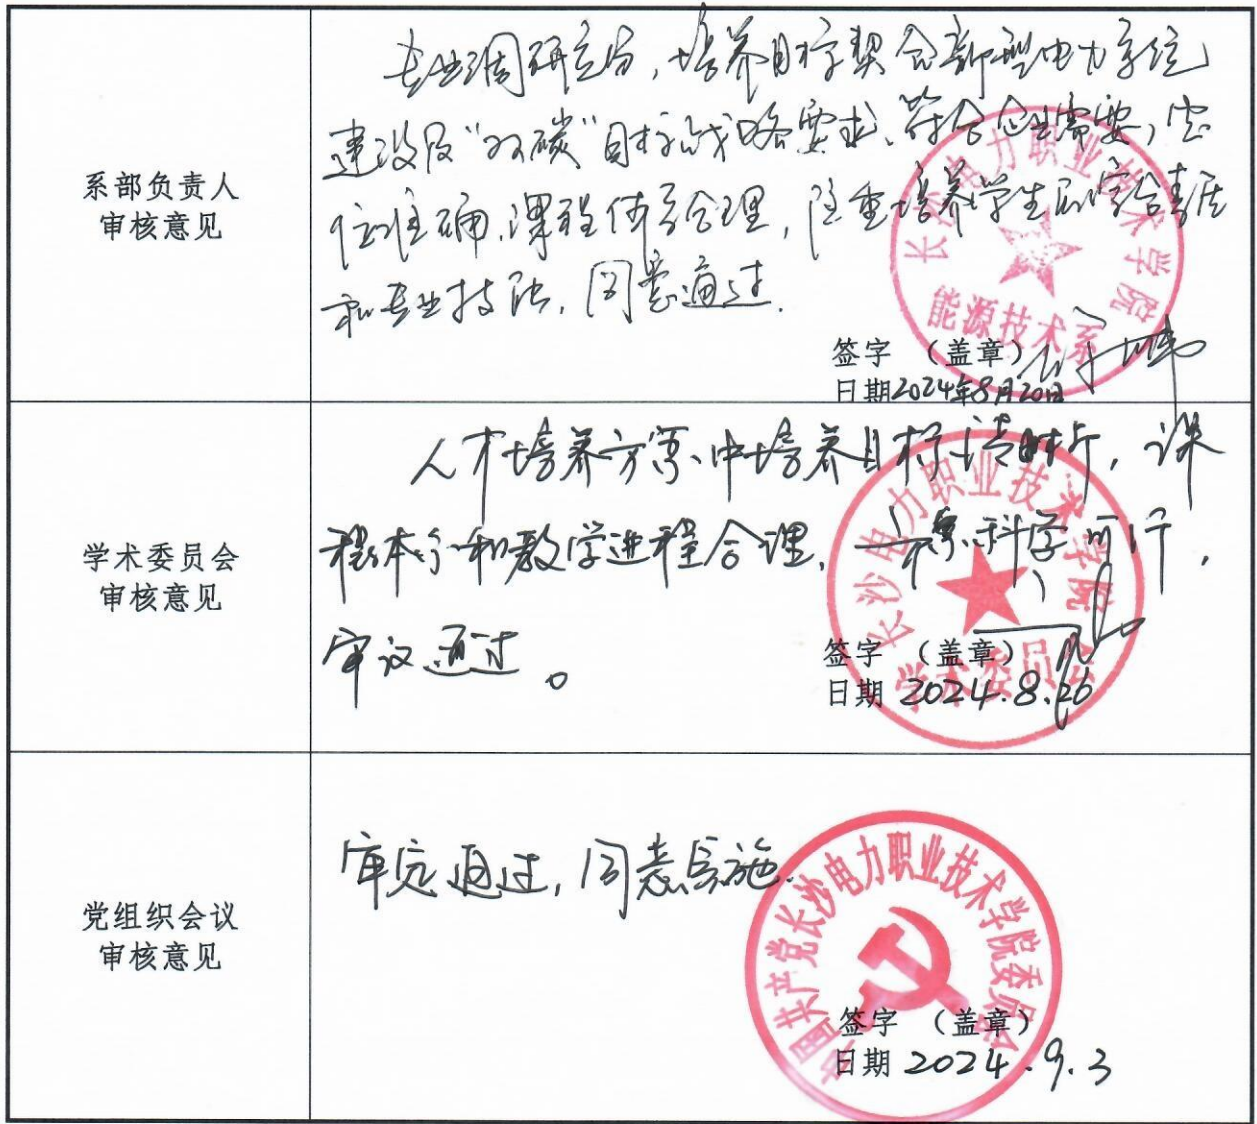 系部负责人
审核意见
专业调研充分，培养目标契合新型电力系统
建设及“双碳”目标战略要求、符合企业需要，定
位准确，课程体系合理，注重培养学生的综合素质
和专业技能，同意通过.
长沙电力职业技术学院
能源技术系
签字 （盖章）
日期2024年8月20日
学术委员会
审核意见
人才培养方案中培养目标清晰，课
程体系和教学进程合理，方案科学可行，
审议通过。
长沙电力职业技术学院
学术委员会
签字 （盖章）
日期 2024.8.26
党组织会议
审核意见
审定通过，同意实施.
中国共产党长沙电力职业技术学院委员会
签字 （盖章）
日期 2024.9.3